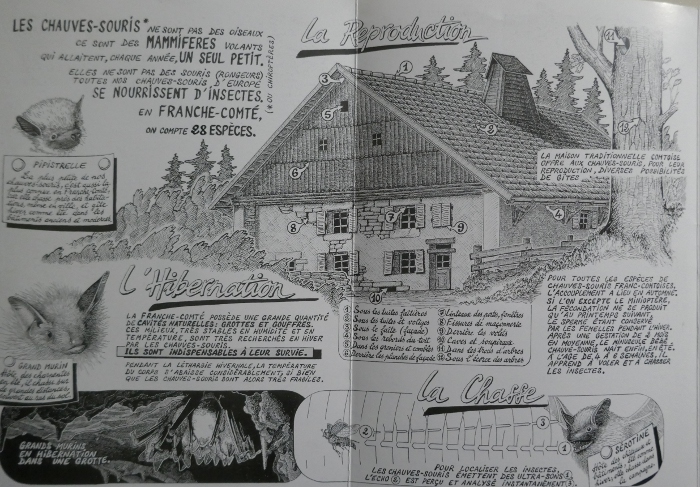 LES CHAUVES-SOURIS* NE SONT PAS DES OISEAUX
CE SONT DES MAMMIFERES VOLANTS
QUI ALLAITENT, CHAQUE ANNÉE, UN SEUL PETIT.
ELLES NE SONT PAS DES SOURIS (RONGEURS)
TOUTES NOS CHAUVES-SOURIS D'EUROPE
SE NOURRISSENT D'INSECTES.
EN FRANCHE-COMTÉ,
ON COMPTE 28 ESPÈCES.
(* OU CHIROPTÈRES)
PIPISTRELLE
La plus petite de nos
chauves-souris, c'est aussi la
La Reproduction
1
3
5
6
2
8
7
9
4
10
11
12
LA MAISON TRADITIONNELLE COMTOISE
OFFRE AUX CHAUVES-SOURIS, POUR LEUR
REPRODUCTION, DIVERSES POSSIBILITÉS
DE GITES
L'Hibernation
LA FRANCHE-COMTÉ POSSÈDE UNE GRANDE QUANTITÉ
DE CAVITÉS NATURELLES: GROTTES ET GOUFFRES.
CES MILIEUX, TRÈS STABLES EN HUMIDITÉ ET EN
TEMPÉRATURE, SONT TRÈS RECHERCHÉS EN HIVER
PAR LES CHAUVES-SOURIS.
ILS SONT INDISPENSABLES À LEUR SURVIE.
PENDANT LA LÉTHARGIE HIVERNALE, LA TEMPÉRATURE
DU CORPS S'ABAISSE CONSIDÉRABLEMENT, SI BIEN
QUE LES CHAUVES-SOURIS SONT ALORS TRÈS FRAGILES.
GRAND MURIN
GRANDS MURINS
EN HIBERNATION
DANS UNE GROTTE.
1 Sous les tuiles faîtières
2 Sous les tuiles et voliges
3 Sous le faîte (façade)
4 Sous les rebords du toit
5 Dans les greniers et combles
6 Derrière les planches de façade
7 Linteaux des portes, fenêtres
8 Fissures de maçonnerie
9 Derrière les volets
10 Caves et soupiraux
11 Dans les trous d'arbres
12 Sous l'écorce des arbres
POUR TOUTES LES ESPÈCES DE
CHAUVES-SOURIS FRANC-COMTOISES,
L'ACCOUPLEMENT A LIEU EN AUTOMNE.
SI L'ON EXCEPTE LE MINIOPTÈRE,
LA FÉCONDATION NE SE PRODUIT
QU'AU PRINTEMPS SUIVANT,
LE SPERME ÉTANT CONSERVÉ
PAR LES FEMELLES PENDANT L'HIVER.
APRÈS UNE GESTATION DE 2 MOIS
EN MOYENNE, LE MINUSCULE BÉBÉ
CHAUVE-SOURIS NAIT ENFIN, EN ÉTÉ.
À L'ÂGE DE 4 À 6 SEMAINES, IL
APPREND À VOLER ET À CHASSER
LES INSECTES.
La Chasse
2
3
1
SÉROTINE
POUR LOCALISER LES INSECTES,
LES CHAUVES-SOURIS ÉMETTENT DES ULTRA-SONS 1
L'ÉCHO 2 EST PERÇU ET ANALYSÉ INSTANTANÉMENT 3